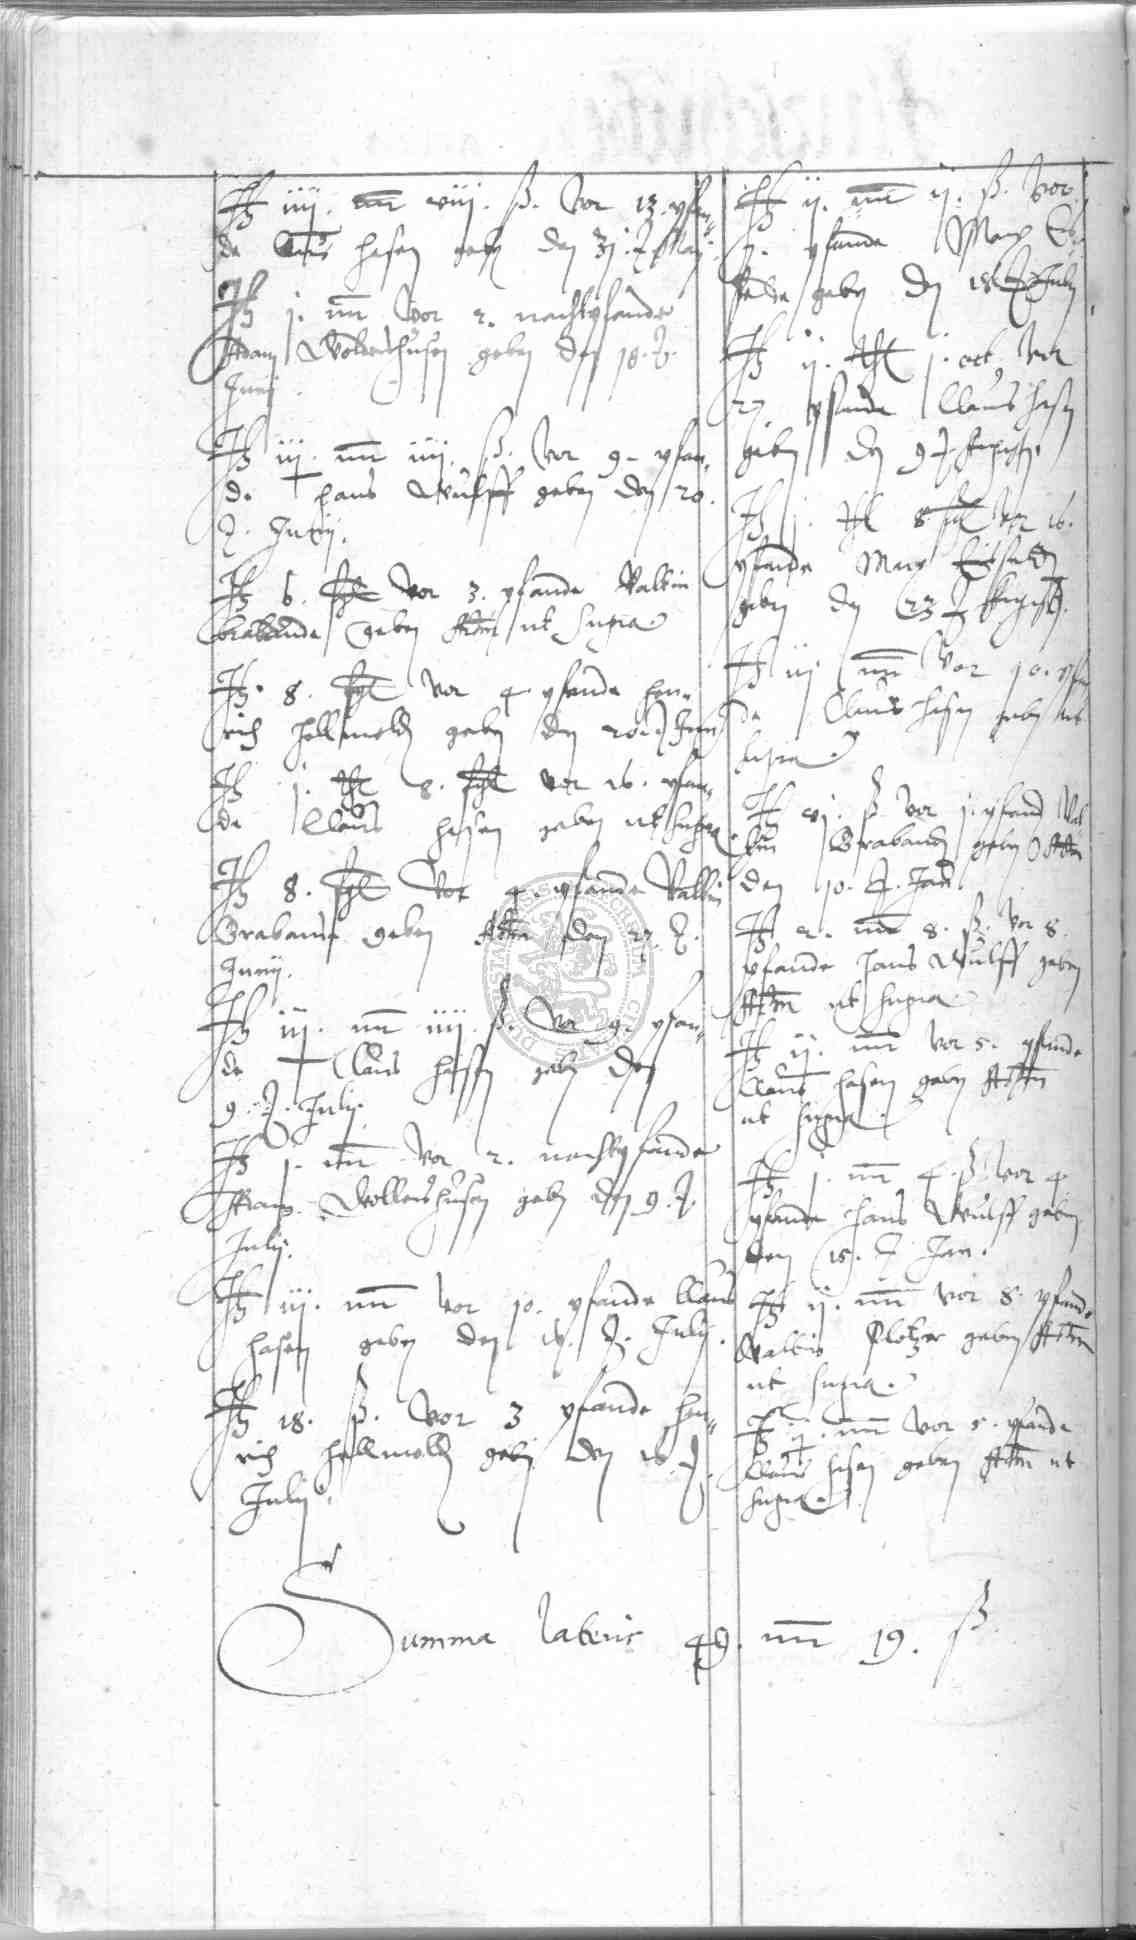 Itz iiij. mr viij. ß. Vor 13. pfan-
de Claus hasen geben den 31. t. Maij.
Itz j. mr Vor 2. nachtpfande
Adam Woldershusen geben den 18. t.
Junij
Itz iij. mr iiij. ß. Vor 9 pfan-
de hans Wulff geben den 20.
t. Junij.
Itz 6. ßl Vor 3. pfande Valtin
brabande geben ut supra.
Itz 8. ßl Vor 4 pfande hen-
rich hellmolds geben den 20 Juny
Itz j. 8. ßl vor 16. pfan-
de Claus hasen geben ut supra
Itz 8. ßl Vor 4. pfande Valtin
Brabant geben den 27. t.
Junij.
Itz iij. mr iiij. ß. Vor 9. pfan-
de Claus hassen geben den
9. t. Julij.
Itz j. mr Vor 2. nachtpfande
Wollershusen geben den 9. t.
Julij.
Itz iij. mr Vor 10. pfande Claus
hasen geben den 16. t. Julij.
Itz 18. ß. Vor 3 pfande hen-
rich hellmolds geben den 16. t.
Julij.
Itz ij. mr ij. ß. Vor
7. pfande Marx
geben den 18 t Julij
Itz ij. j. ort. Vor
27 pfande Claus hasen
geben den 9 t Augusti.
Itz j. 8 ßl Vor 16.
pfande Marx
geben den 23 t Augusti.
Itz iij mr Vor 10. pfan
de Claus hasen geben ut
supra.
Itz vj. ß. vor j. pfand Val-
tin Brabands geben
den 10. t. Jan.
Itz 2. mr 8. ß. Vor 8.
pfande hans Wulff geben
ut supra.
Itz ij. mr Vor 5. pfande
Claus hasen geben
ut supra.
Itz j. mr 4. ß. Vor 4
pfande hans Wulff geben
den 15. t Jan.
Itz ij. mr Vor 8. pfande
Valtin Plotzer geben
ut supra.
Itz ij. mr Vor 5. pfande
Claus hasen geben ut
supra.
Summa lateris 49. mr 19. ß